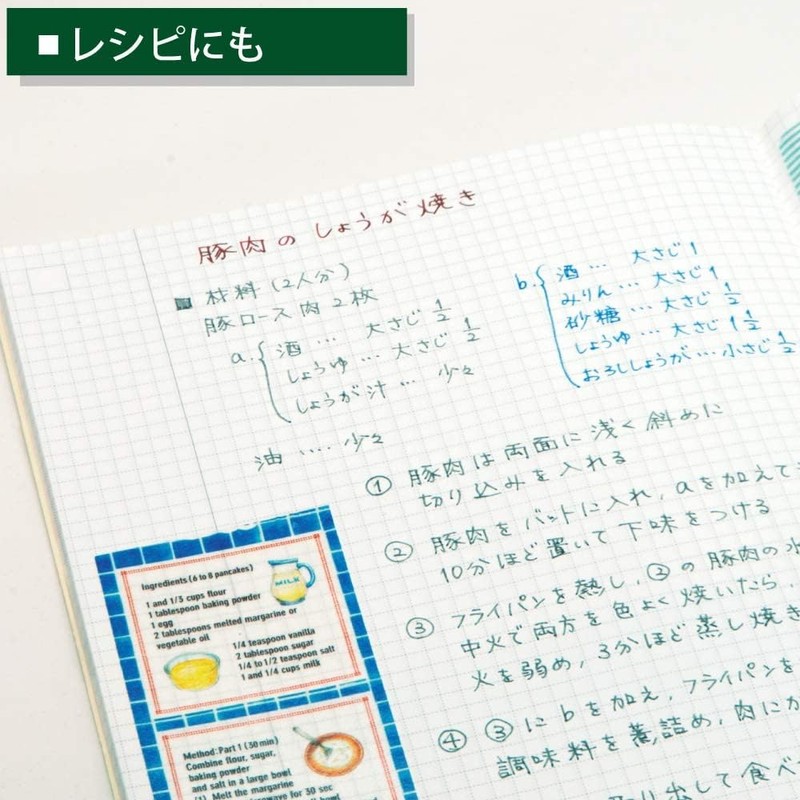 ■レシピにも
豚肉のしょうが焼き
■ 材料 (2人分)
豚ロース肉 2枚
a. 酒 … 大さじ 1/2
しょうゆ … 大さじ 1/2
しょうが汁 … 少々
油 …. 少々
b. 酒 … 大さじ 1
みりん … 大さじ 1
砂糖 … 大さじ 1/2
しょうゆ … 大さじ 1 1/2
おろししょうが … 小さじ 1/2
① 豚肉は両面に浅く斜めに
切り込みを入れる
② 豚肉をバットに入れ, aを加えて
10分ほど置いて下味をつける
③ フライパンを熱し, ②の豚肉の
中火で両方を色よく焼いたら,
火を弱め, 3分ほど蒸し焼き
④ ③にbを加え, フライパンを
調味料を煮詰め, 肉にか
り出して食べ
Ingredients (6 to 8 pancakes)
1 and 1/3 cups flour
1 tablespoon baking powder
1 egg
2 tablespoons melted margarine or
vegetable oil
1/4 teaspoon vanilla
2 tablespoon sugar
1/4 to 1/2 teaspoon salt
1 and 1/4 cups milk
MILK
Method: Part 1 (30 min)
Combine flour, sugar,
baking powder
and salt in a large bowl
(1) Melt the margarine
for 30 sec
bowl